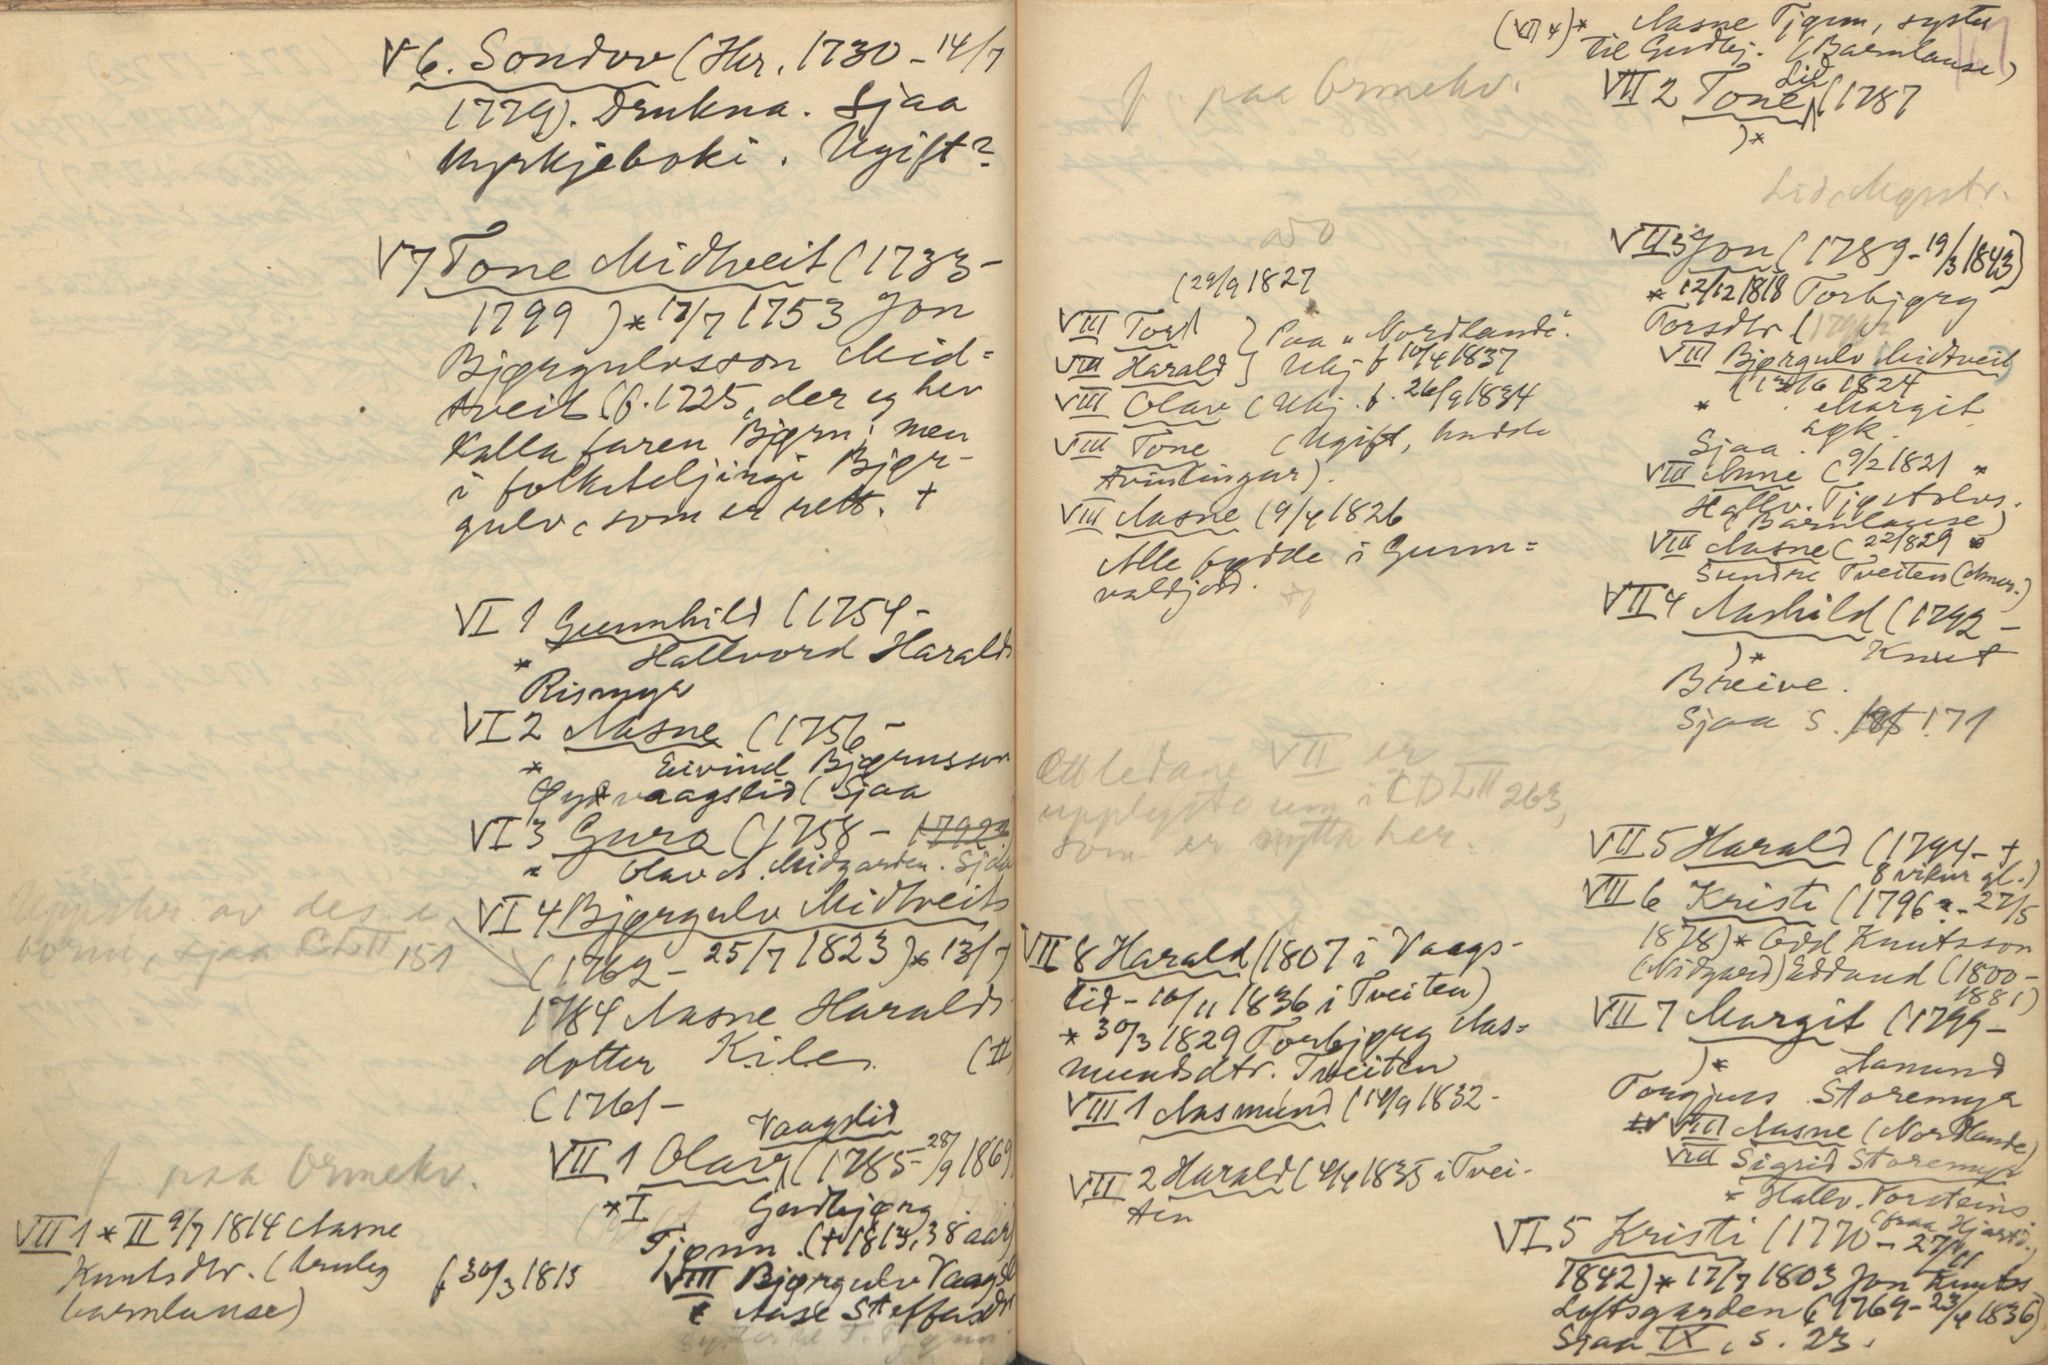 V 6. Sondov (Hr. 1730 - 14/7
1779). Drukna. Sjaa
Kyrkjeboki. Ugift?
V 7 Tone Midtveit (1733-
1799 ) * 17/7 1753 Jon
Bjørgulvsson Mid=
tveit (f. 1725, der eg hev
kalla faren Bjørn; men
i folketeljingi Bjør-
gulv, som er rett. +
VI 1 Gunnhild (1754-
* Hallvord Haralds
Rismyr
VI 2 Aasne (1756-
* Eivind Bjørnsson
Øyvaagslid (Sjaa
VI 3 Guro (1758- 1792?)
* Olav A. Midgarden. Sjaa
VI 4 Bjørgulv Midtveit
(1762 - 25/7 1823) * 13/7
1784 Aasne Haralds
dotter Kile. (II
(1761-
av des
borni, sjaa CLII 151
Vaagslid
VII 1 Olav (1785 - 28/9 1869)
* I Gudbjørg
Tjønn. (+ 1813, 38 aar)
VIII Bjørgulv Vaagsl
* Aase Steffensdtr
syster til T. Tjønn.
f paa Ormekv.
VII 1 * II 9/7 1814 Aasne
Knutsdtr. (truleg
barnlause)
f 30/3 1815
f paa Ormekv.
(29/9 1827
VIII Tord } Paa "Nordlande".
VIII Harald } Ukj f 10/4 1837
VIII Olav (Ukj. f. 26/9 1834
VIII Tone (Ugift, hadde
tvinlingar).
VIII Aasne (9/4 1826
Alle fydde i Gunn=
valdjord.
Ettledane VII er
upplyst um i CDLII 263,
som er nytta her.
VII 8 Harald (1807 i Vaags-
lid - 16/11 1836 i Tveiten)
* 30/3 1829 Torbjørg Aas=
mundsdtr. Tveiten
VIII 1 Aasmund (14/9 1832 -
VIII 2 Harald (4/4 1835 i Tvei-
ten
(VII 4) * Aasne Tjønn, syster
til Gudbj. (Barnlause)
Lid
VII 2 Tone (1787
) *
Lid, Mogstr.
VII 3 Jon (1789 - 19/3 1843)
* 12/12 1818 Torbjørg
Torsdtr (
VIII Bjørgulv Midtveit
(13/6 1824
* Margit
Sjaa
VIII Anne (9/2 1821 *
Hallv. Tjøstolvs.
(Barnlause)
VIII Aasne (22/ 829 *
Sundre Tveiten (Amer.)
VII 4 Aashild (1792 -
) * Knut
Breive.
Sjaa s. 171
VII 5 Harald (1794 - +
8 vikur gl.)
VII 6 Kristi (1796 ? - 27/5
1878) * Odd Knutsson
(Nidgard) Edland (1800-
1881)
VII 7 Margit (1799 -
) * Aamund
Torgjuss. Storemyr
VIII Aasne (Nordlande)
VIII Sigrid Storemyr
* Hallv. Torsteins
(fraa Hjartd.)
VI 5 Kristi (1770 - 27/11
1842) * 17/7 1803 Jon Knutss
Loftsgarden (1769 - 23/4 1836)
Sjaa IX, s. 23.